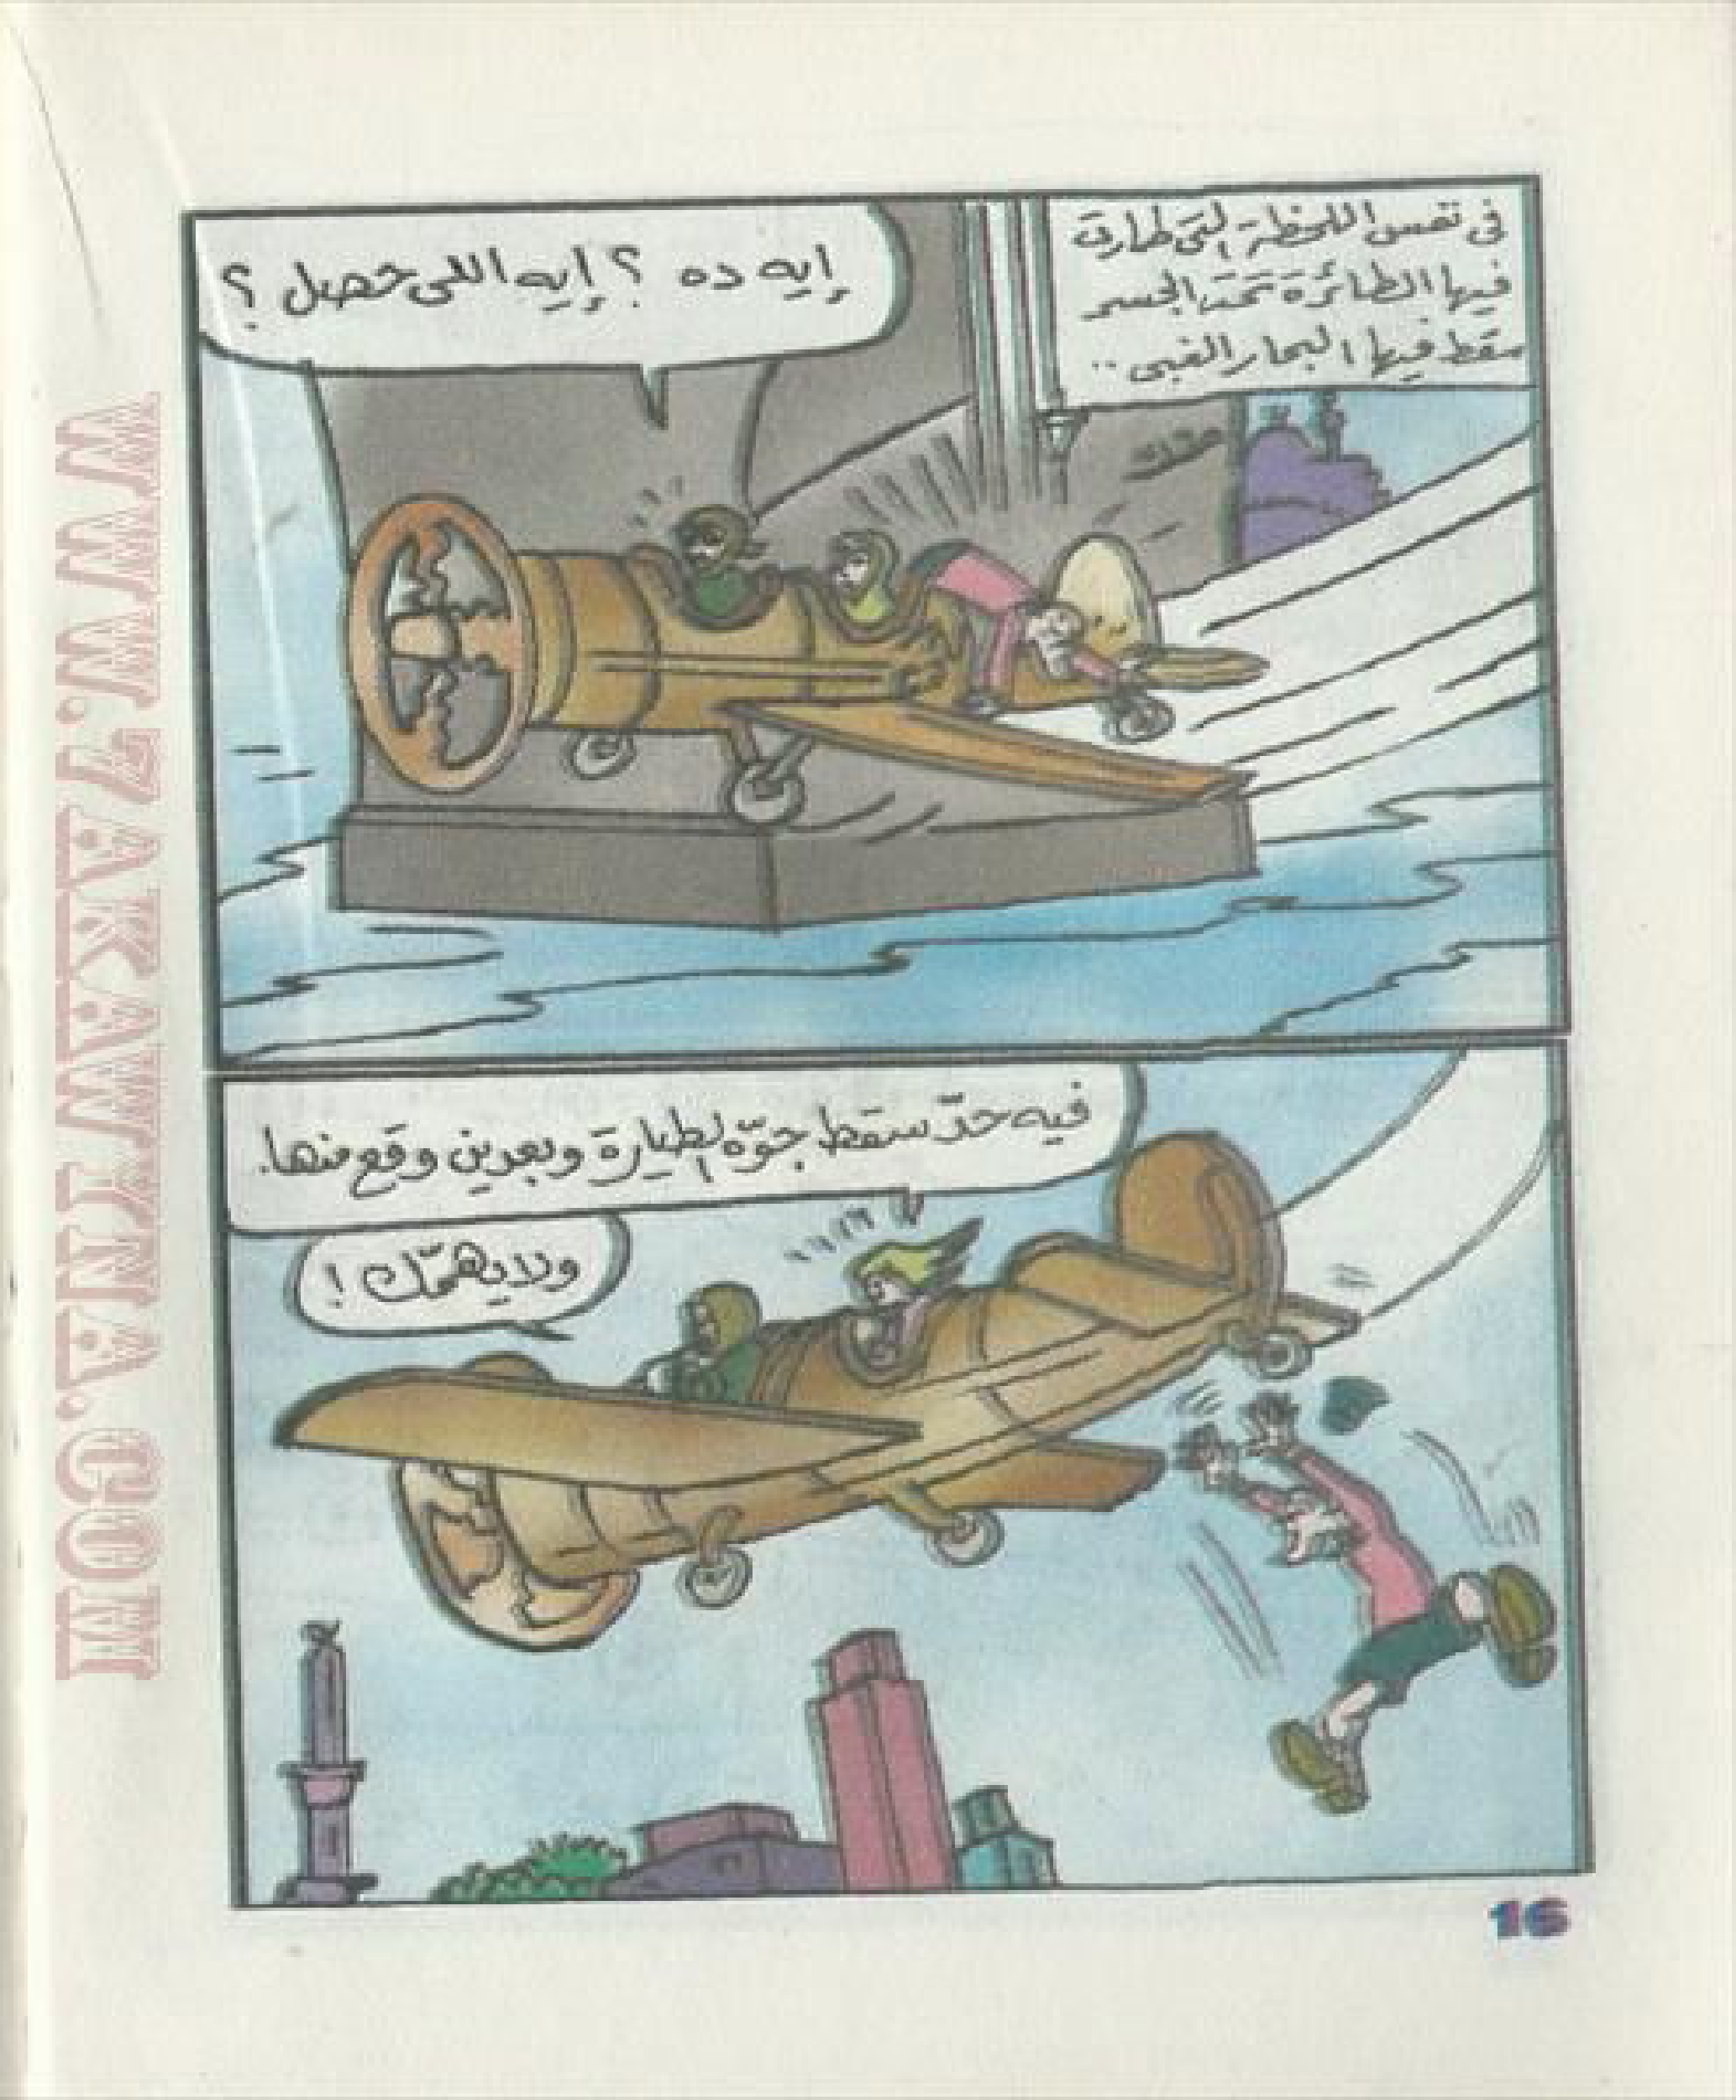 فى نفس اللحظة التى طارت
فيها الطائرة تحت الجسر
سقط فيها البحار الغبى ..
إيه ده ؟ إيه اللى حصل ؟
فيه حدّ سقط جوّه الطيارة وبعدين وقع منها.
ولا يهمّك !
16
WWW.7AKAWTNA.COM